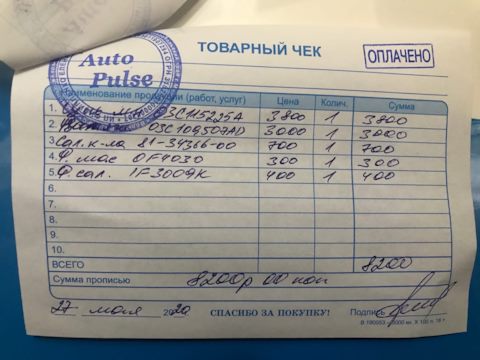 Auto
Pulse
ТОВАРНЫЙ ЧЕК
ОПЛАЧЕНО
Наименование продукции (работ, услуг) Цена Колич. Сумма
1. 03C115225A 3800 1 3800
2. 03C109507AD 3000 1 3000
3. Сал. к-ла 81-34366-00 700 1 700
4. Ф. мас OF4030 300 1 300
5. Ф сал. 1F3009K 400 1 400
6.
7.
8.
9.
10.
ВСЕГО 8200
Сумма прописью 8200р 00 коп
27 мая 2020 СПАСИБО ЗА ПОКУПКУ! Подпись